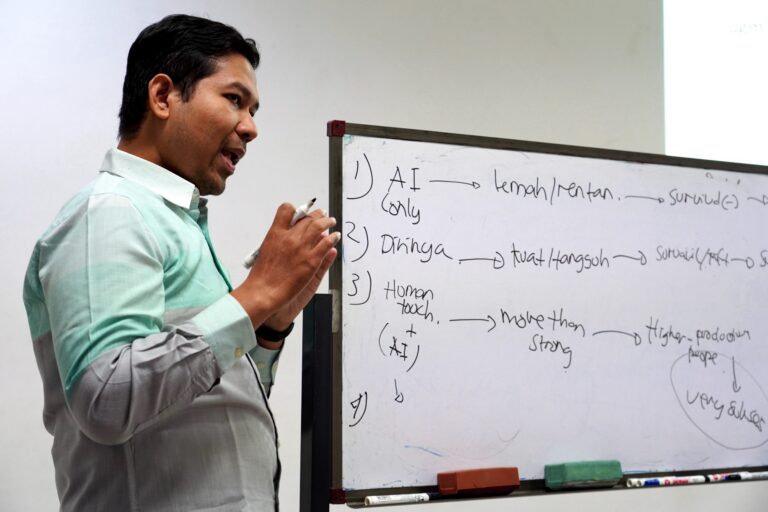 1) AI only → lemah/rentan. → survival(-) →
2) Dirinya → kuat/tangguh → →
3) Human touch. + (AI) → more than strong → Higher-production people
very sukses
4)